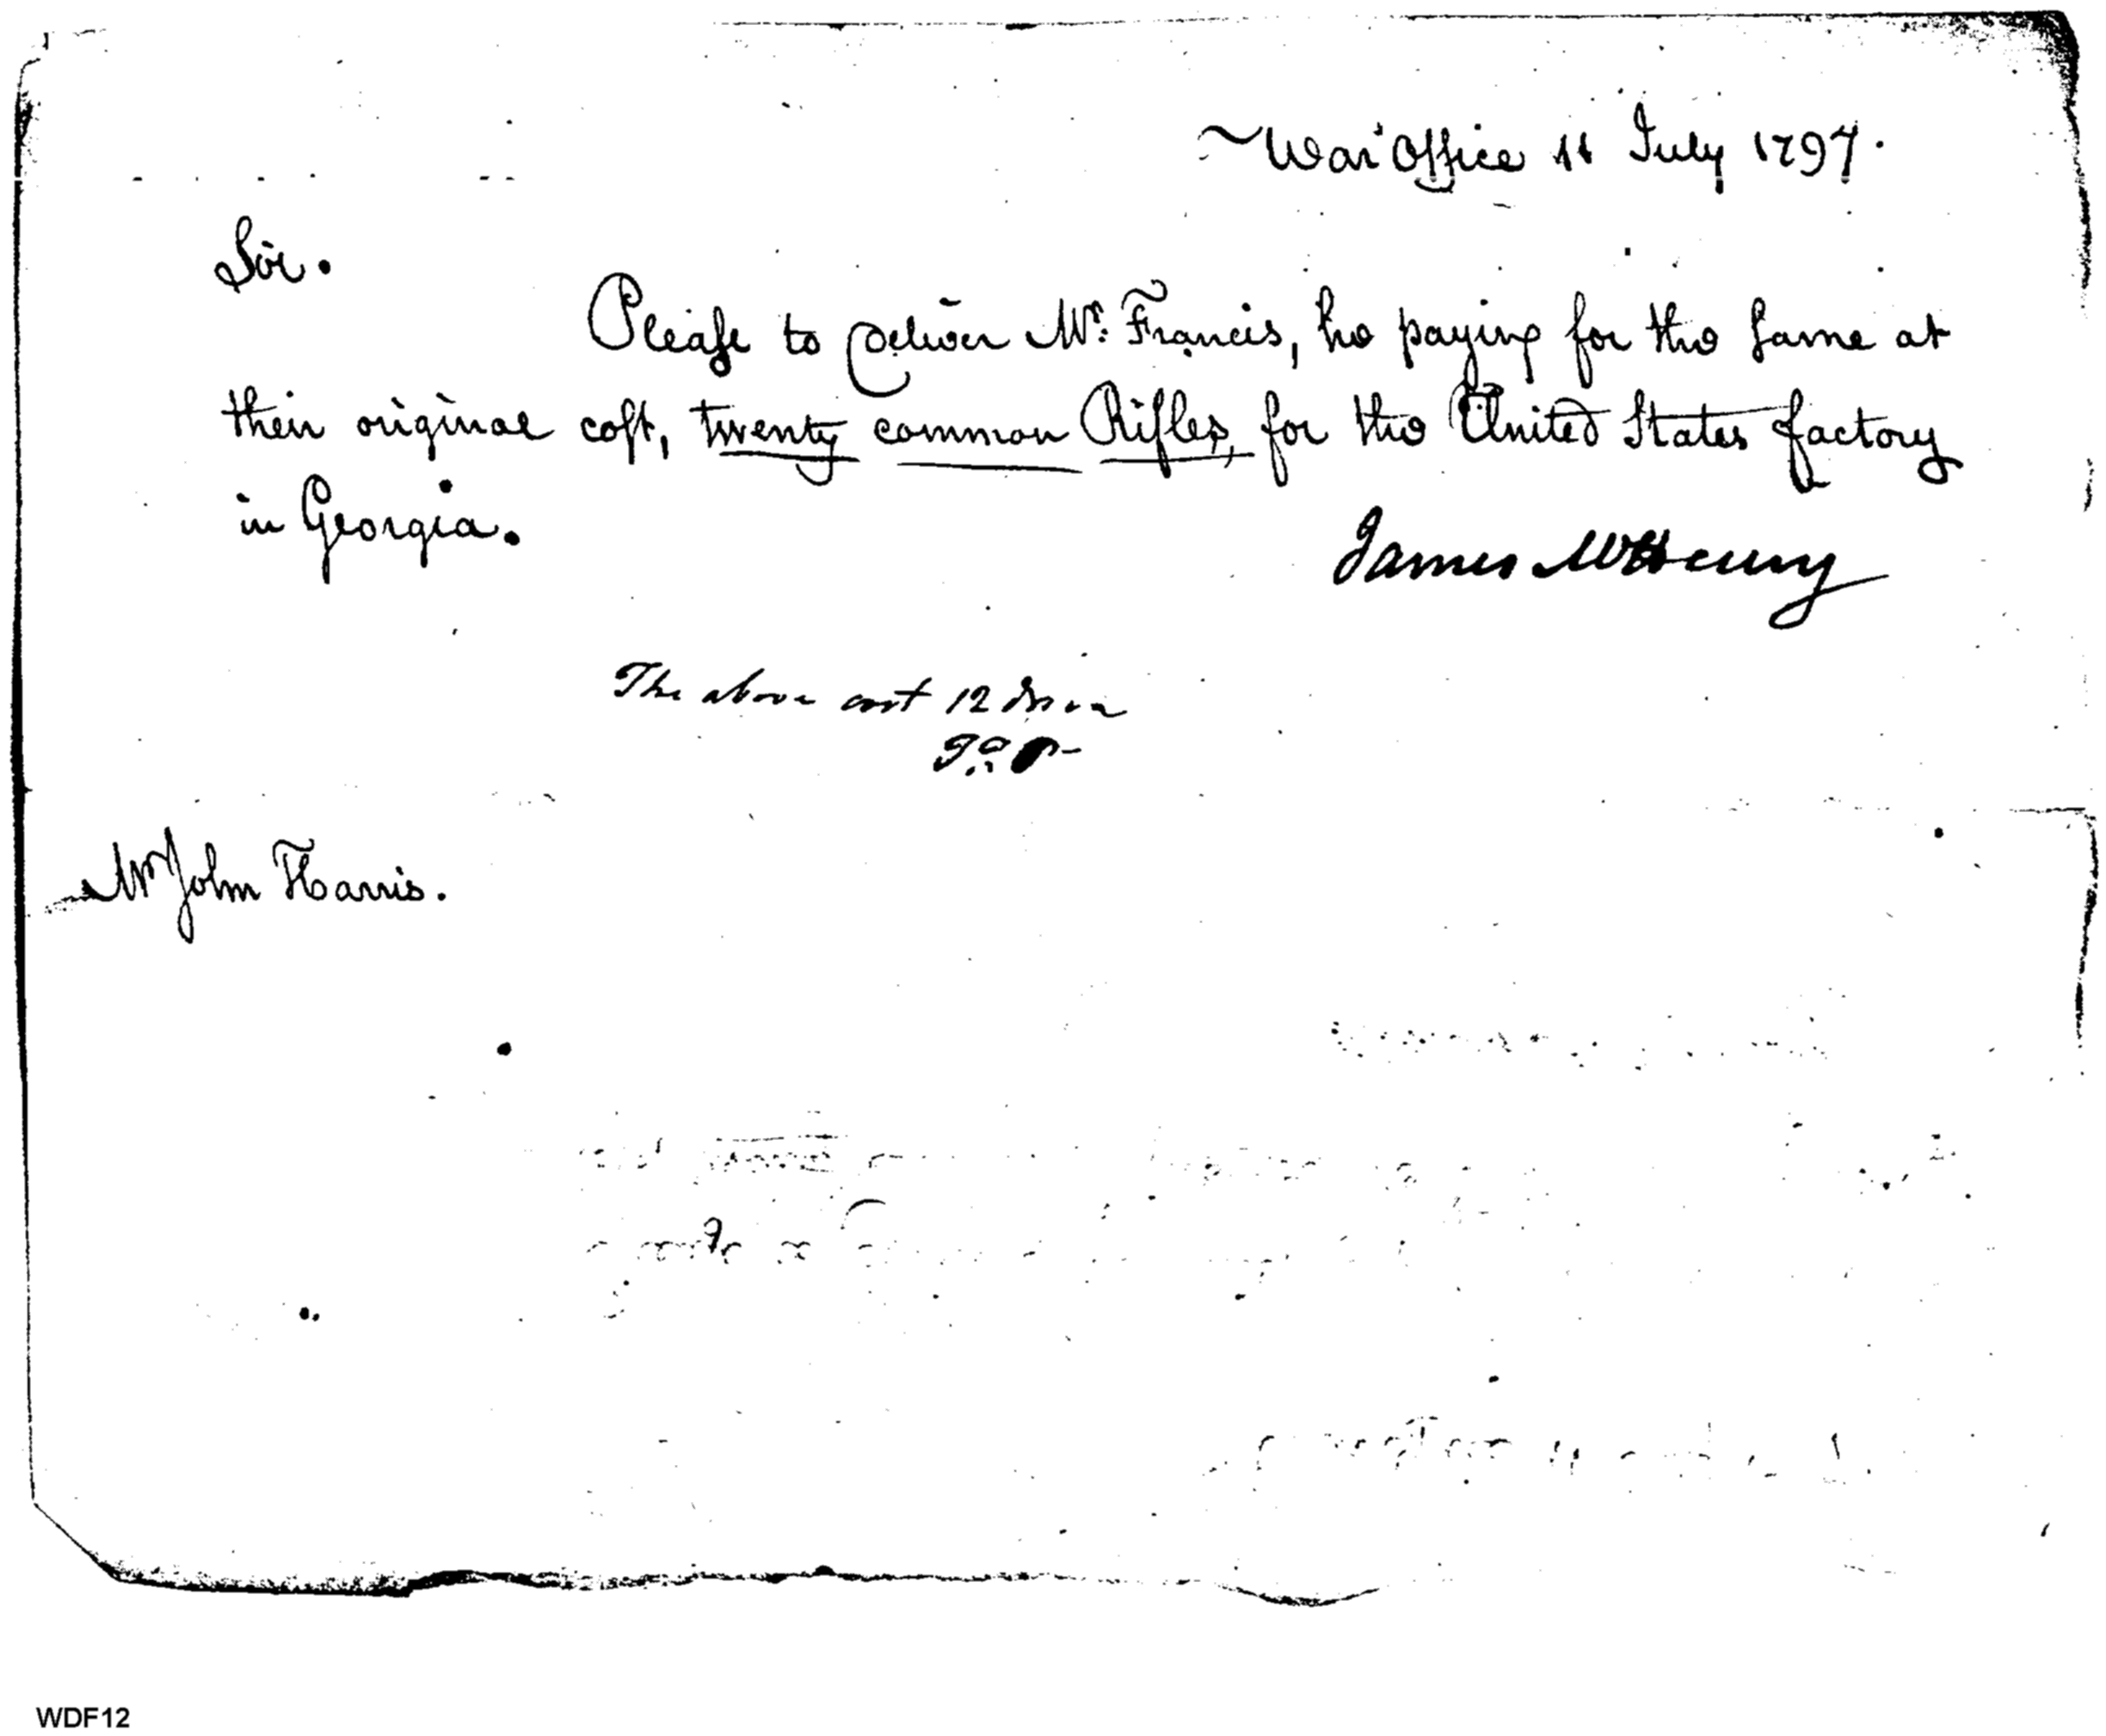 War Office 11 July 1797.
Sir.
Pleaſe to Deliver Mr. Francis, he paying for the same at
their original coſt, twenty common Rifles, for the United States factory
in Georgia.
James McHenry
The above cost 12
Mr John Harris.
WDF12